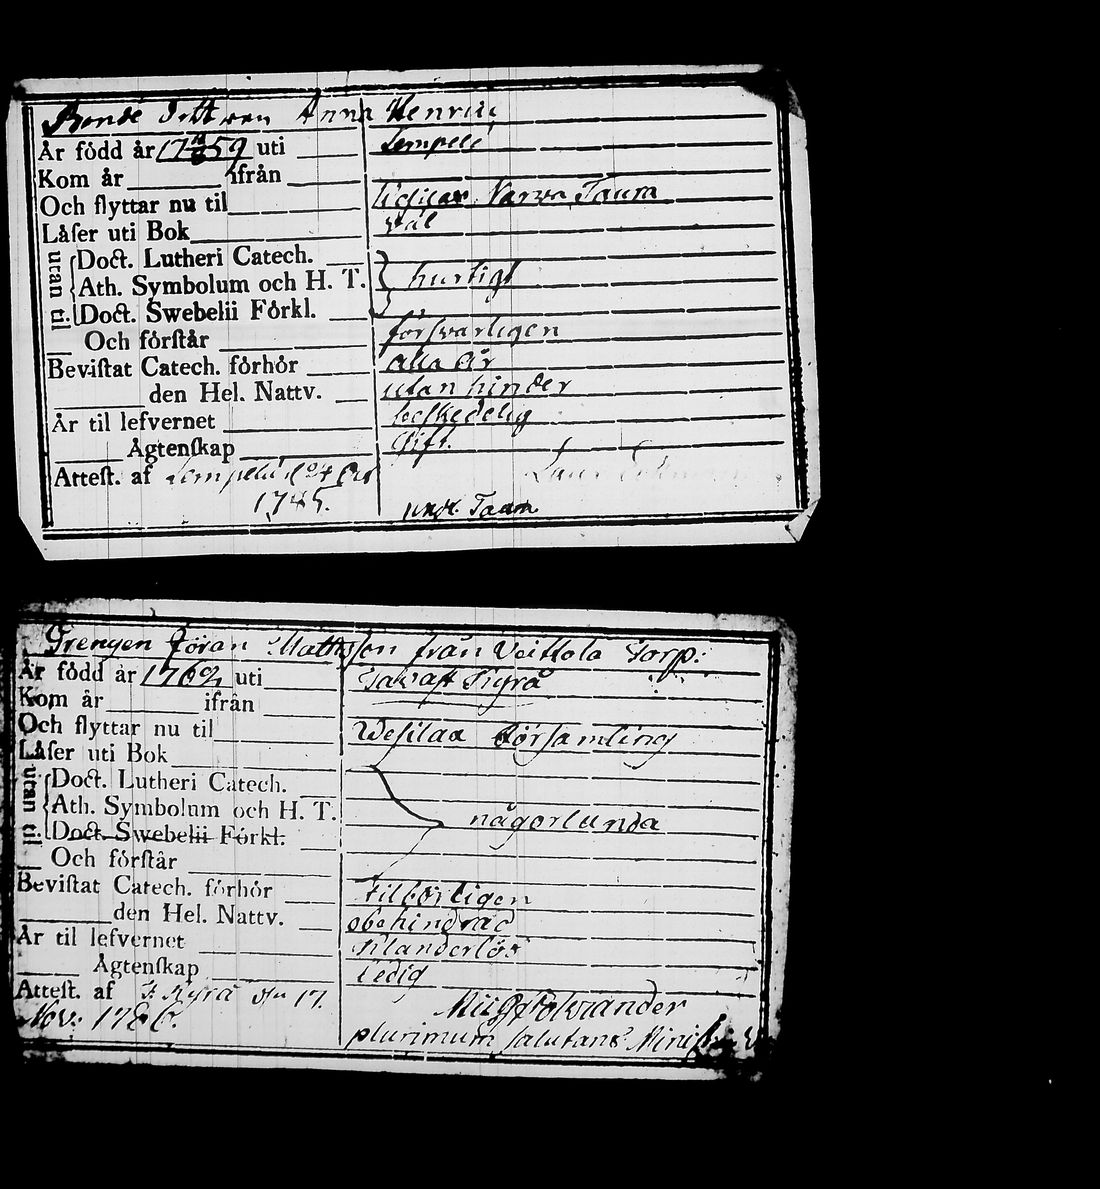 Bonde dottren Anna Henric
År född år 17 59 uti Lempelé
Kom år ifrån
Och flyttar nu til Narva, Taum
Låſer uti Bok väl
utan til
Doct. Lutheri Catech.
Ath. Symbolum och H. T. hurtigt
Doct. Swebelii Förkl.
Och förſtår förſvarligen
Beviſtat Catech. förhör alla år
den Hel. Nattv. utan hinder
År til lefvernet beſkedelig
Ägtenſkap Gift.
Atteſt. af Lempelé d. 24 Oct
1785. Taum
Drengen Jöran Mattsſon från Veittola Torp.
År född år 1760/ uti Tavaſt Kyrå
Kom år ifrån
Och flyttar nu til Weſilax Förſamling
Låſer uti Bok
utan til
Doct. Lutheri Catech.
Ath. Symbolum och H. T. någorlunda
Doct. Swebelii Förkl.
Och förſtår
Beviſtat Catech. förhör tilbörligen
den Hel. Nattv. obehindrad
År til lefvernet klanderlös
Ägtenſkap ledig
Atteſt. af T. Kyrå den 17.
Nov: 1786.
plurimum ſalutans